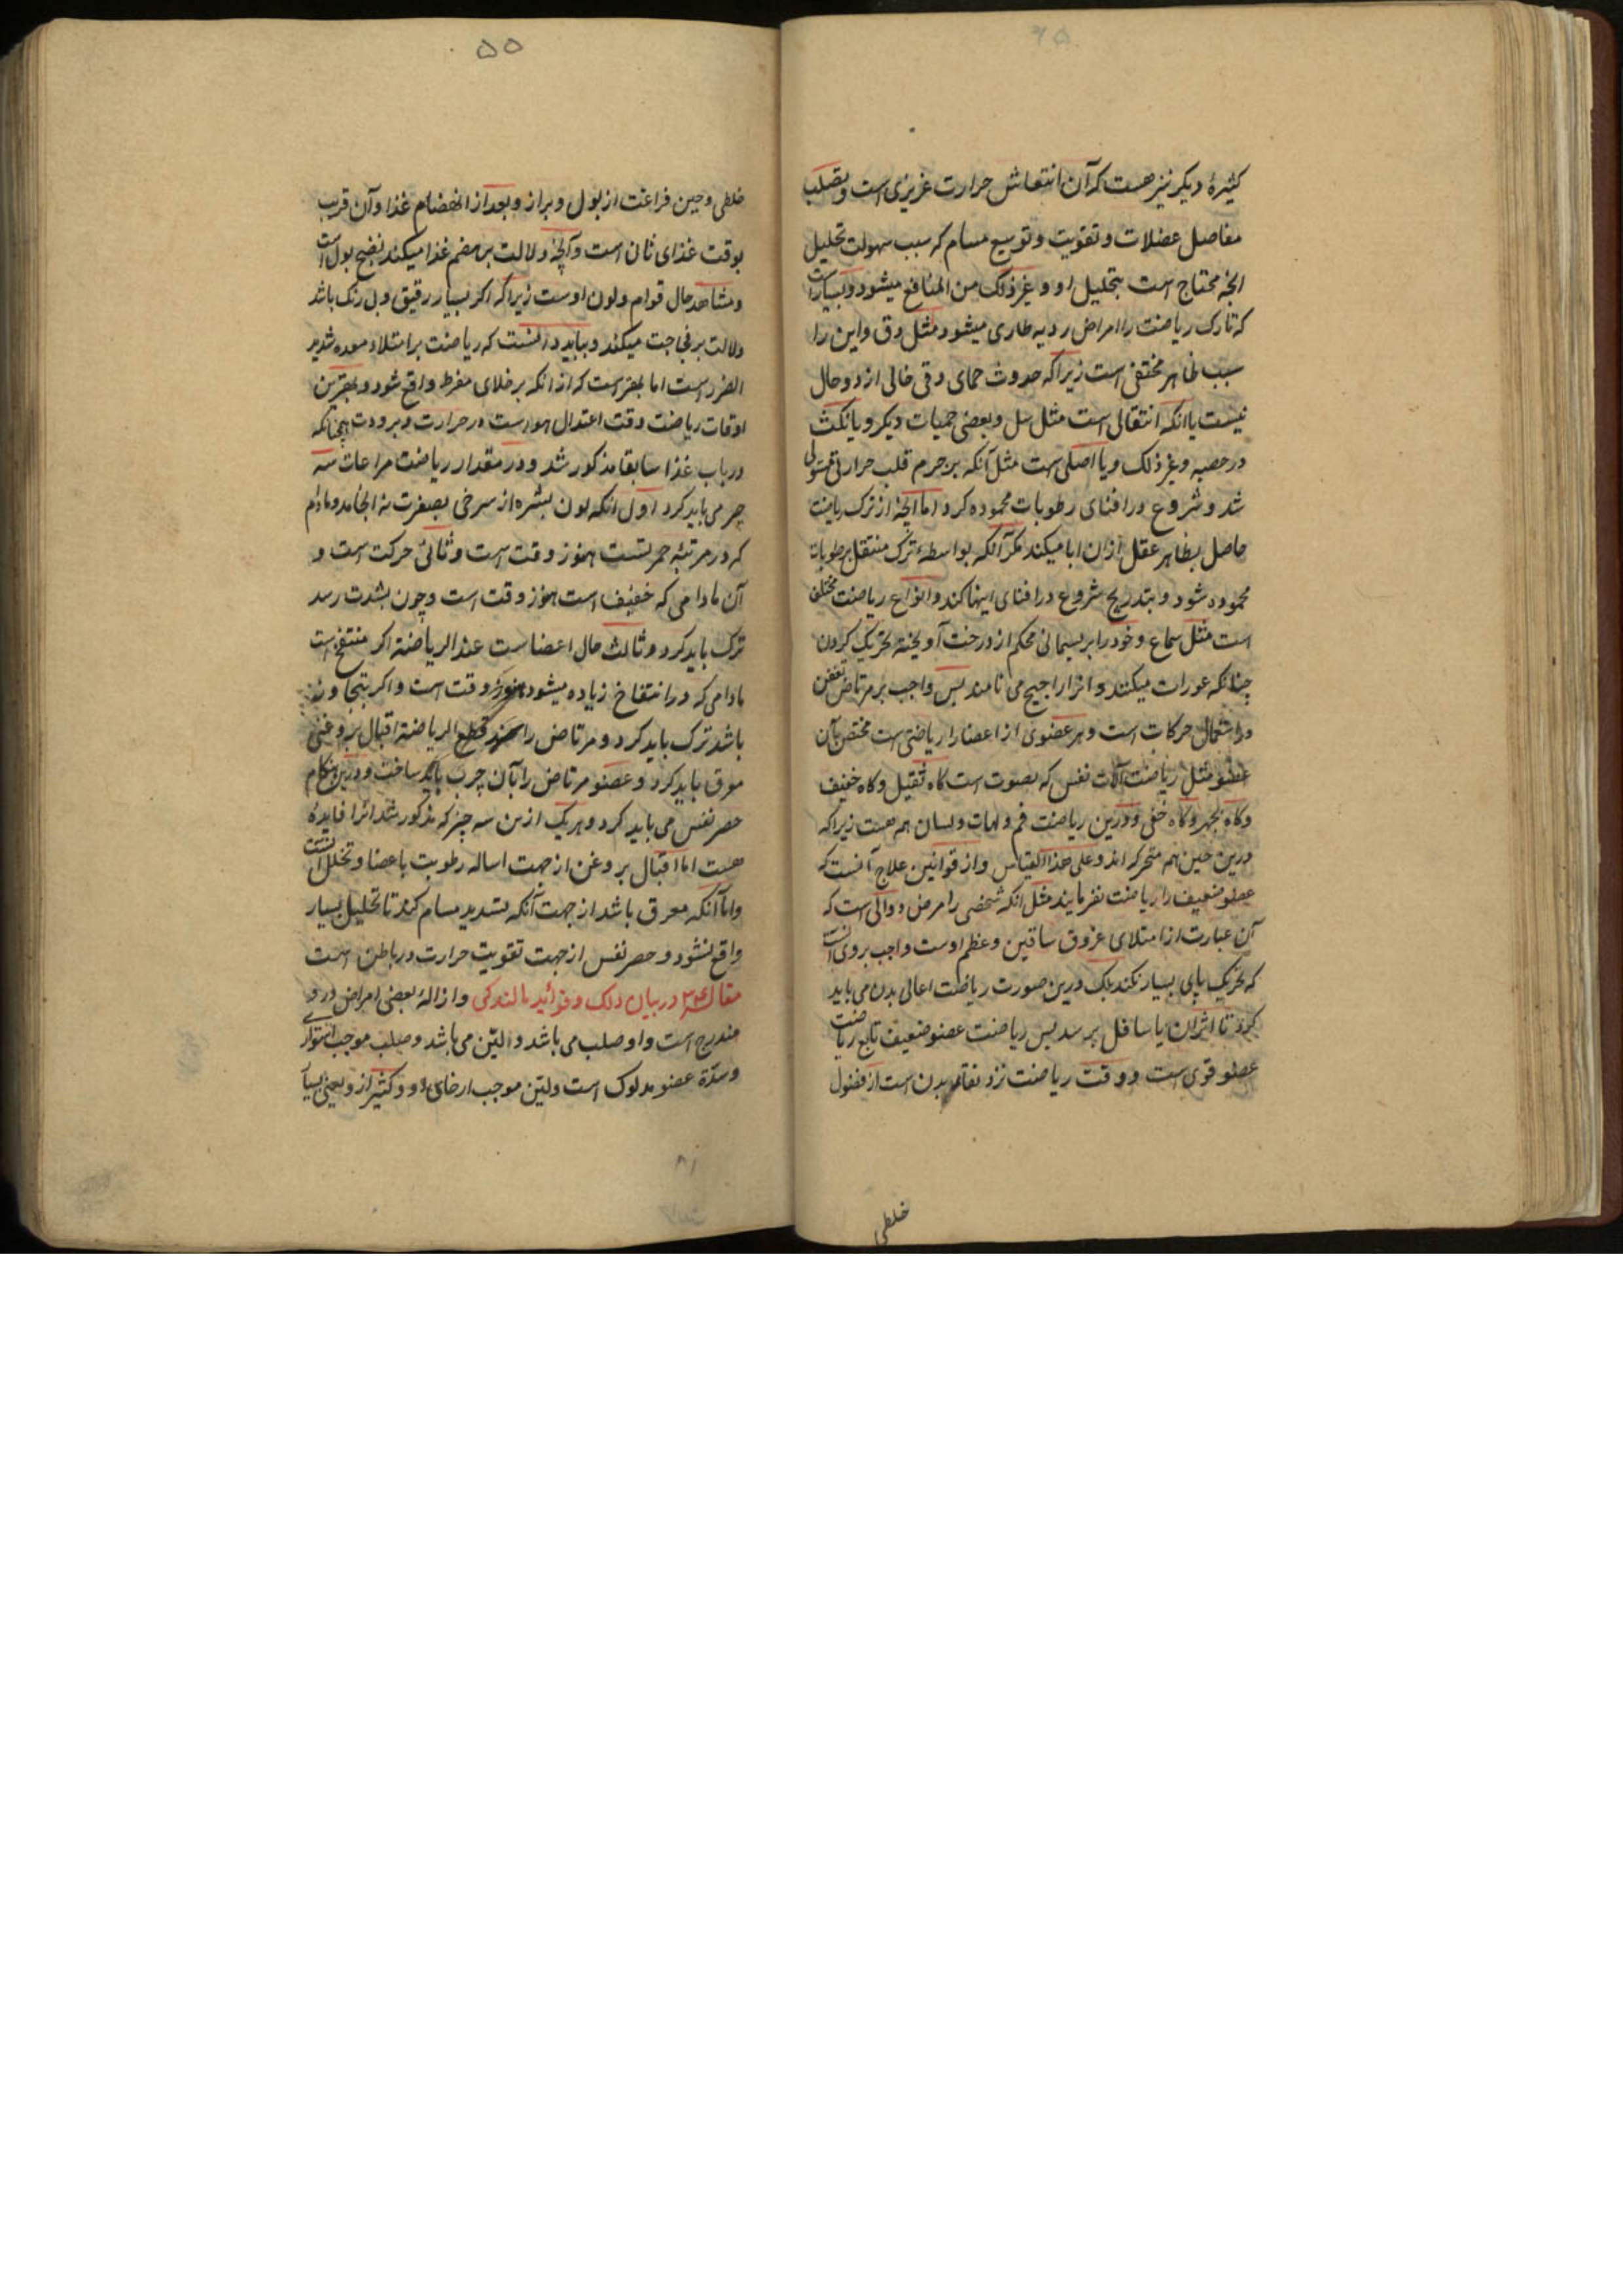 کثیرهٔ دیکر نیز هست که آن انتعاش حرارت غریزی است و تصلب
مفاصل عضلات و تقویت و توسیع مسام که سبب سهولت تحلیل
انچه محتاج است بتحلیل او و غیر ذلک من المنافع میشود و بسیار است
که تارک ریاضت را امراض ردیه طاری میشود مثل دق و این را
سبب ظاهر مختفی است زیرا که حدوث حمای دقی خالی از دو حال
نیست یا انکه انتقالی است مثل سل و بعضی حمیات دیکر و یا نکث
در حصبه و غیر ذلک و یا اصلی است مثل آنکه بر جرم قلب حرارتی مستولی
شد و شروع در افنای رطوبات محموده کرد اما انچه از ترک ریاضت
حاصل بظاهر عقل ازان ابا میکند مکر آنکه بواسطهٔ ترک منتقل برطوبات
محموده شود و بتدریج شروع در افنای اینها کند و انواع ریاضت مختلف
است مثل سماع و خود را بریسمانی محکم از درخت آویخته تحریک کردن
چنانکه عورات میکنند و انرا اجیح می نامند پس واجب بر مرتاض تفنن
در استعمال حرکات است و هر عضوی از اعضا را ریاضتی است مختص بآن
عضو مثل ریاضت آلات نفس که بصوت است کاه ثقیل و کاه خفیف
و کاه بجهر و کاه خفی و درین ریاضت فم و لهات و لسان هم هست زیرا که
درین حین هم متحرک اند و علی هذا القیاس و از قوانین علاج آنست که
عضو ضعیف را ریاضت نفرمایند مثل انکه شخصی را مرض دوالی است که
آن عبارت از امتلای عروق ساقین و عظم اوست واجب بر وی آنست
که تحریک پای بسیار نکند بلکه درین صورت ریاضت اعالی بدن می باید
کرد تا اثر آن با سافل برسد پس ریاضت عضو ضعیف تابع ریاضت
عضو قوی است و وقت ریاضت نزد نقای بدن است از فضول
خلطی
۵۵
خلطی و حین فراغت از بول و براز و بعد از انهضام غذا و آن قریب
بوقت غذای ثان است و آنچه دلالت بر هضم غذا میکند نضج بول است
و مشاهد حال قوام و لون اوست زیرا که اکر بسیار رقیق و بی رنک باشد
دلالت بر فجاجت میکند و بباید دانست که ریاضت بر امتلاء معده شدید
الضرر است اما بهتر است که از انکه بر خلای مفرط واقع شود و بهترین
اوقات ریاضت وقت اعتدال هواست در حرارت و برودت چنانکه
در باب غذا سابقا مذکور شد و در مقدار ریاضت مراعات سه
چیز می باید کرد اول انکه لون بشره از سرخی بصفرت نه انجامد و مادام
که در مرتبه حمرتست هنوز وقت است و ثانی حرکت است و
آن مادامی که خفیف است هنوز وقت است و چون بشدت رسد
ترک باید کرد و ثالث حال اعضاست عند الریاضة اکر منتفخ است
مادامی که در انتفاخ زیاده میشود هنوز وقت است و اکر بتجاوز
باشد ترک باید کرد و مرتاض را عند قطع الریاضة اقبال بروغنی
معرق باید کرد و عضو مرتاض را بآن چرب باید ساخت و درین هنکام
حصر نفس می باید کرد و هر یک ازین سه چیز که مذکور شد انرا فایدهٔ
هست اما اقبال بروغن از جهت اساله رطوبت باعضا و تخلل آنست
و اما آنکه معرق باشد از جهت آنکه تسدید مسام کند تا تحلیل بسیار
واقع نشود و حصر نفس از جهت تقویت حرارت در باطن است
مقاله ۳ در بیان دلک و فوائد مالندکی و ازالهٔ بعضی امراض درو
مندرج است و او صلب می باشد و الین می باشد و صلب موجب استوار
و سدّة عضو مدلوک است و لین موجب ارخای او و کثیر ازو یعنی بسیار
۸۱